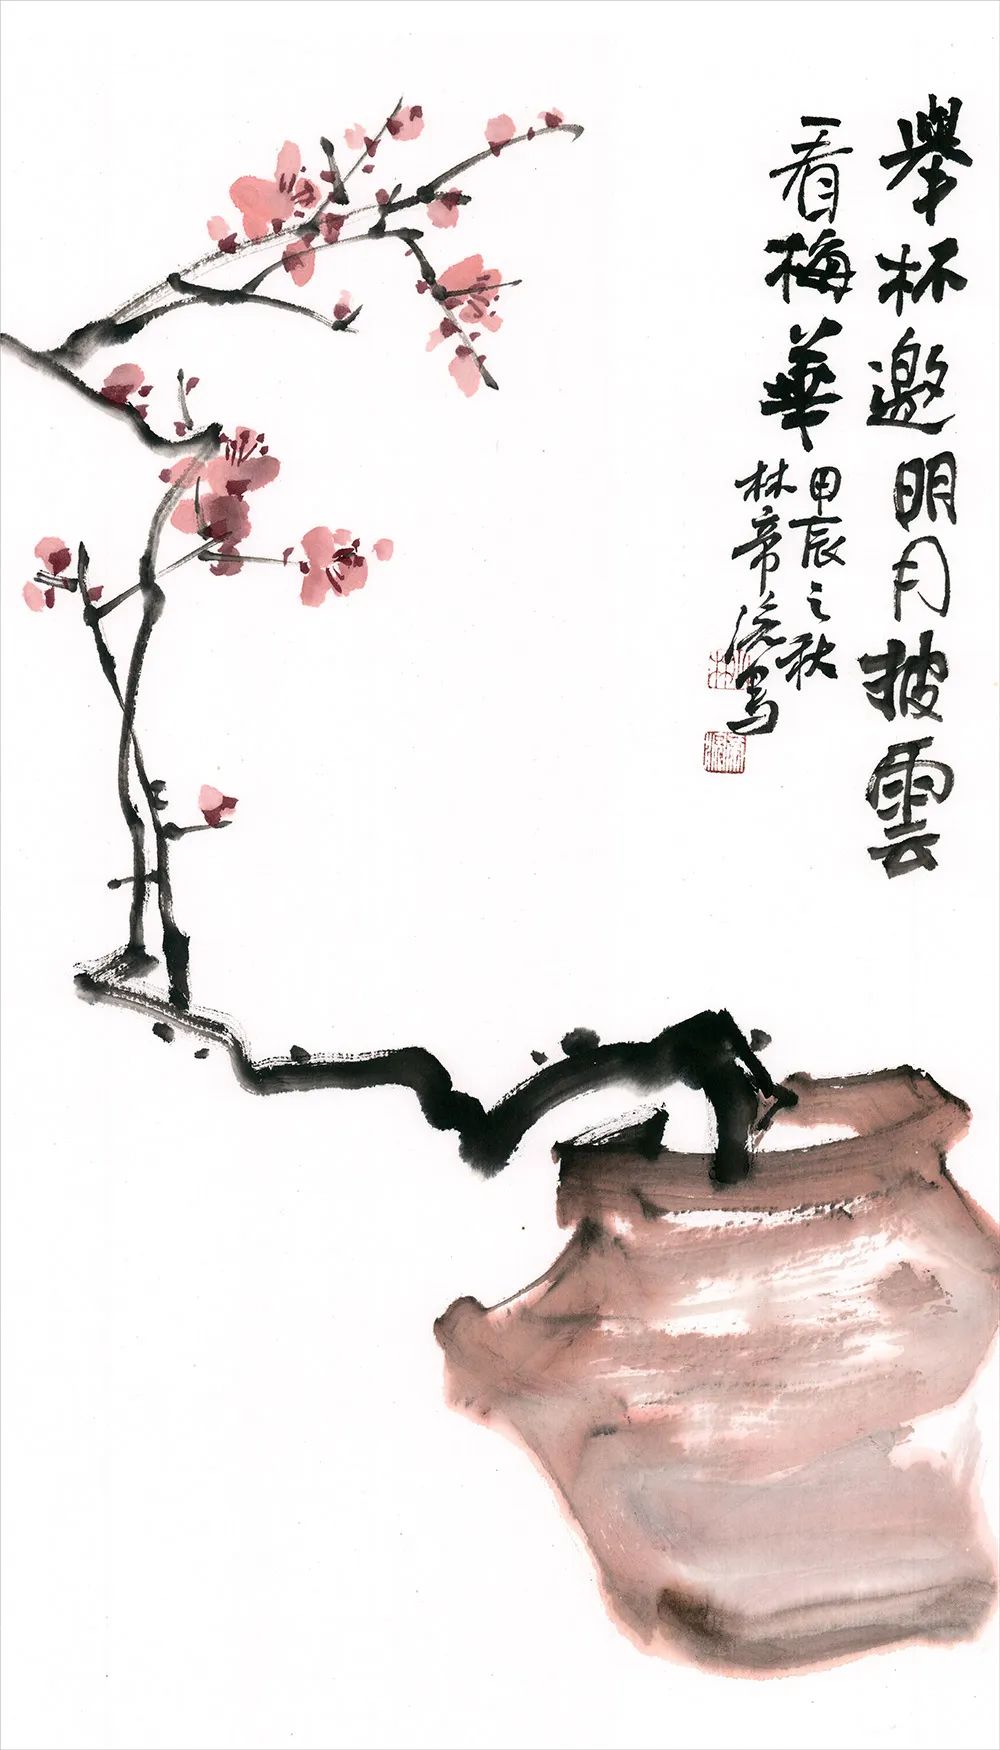 舉杯邀明月披雲
看梅華
甲辰之秋
林帝浣写